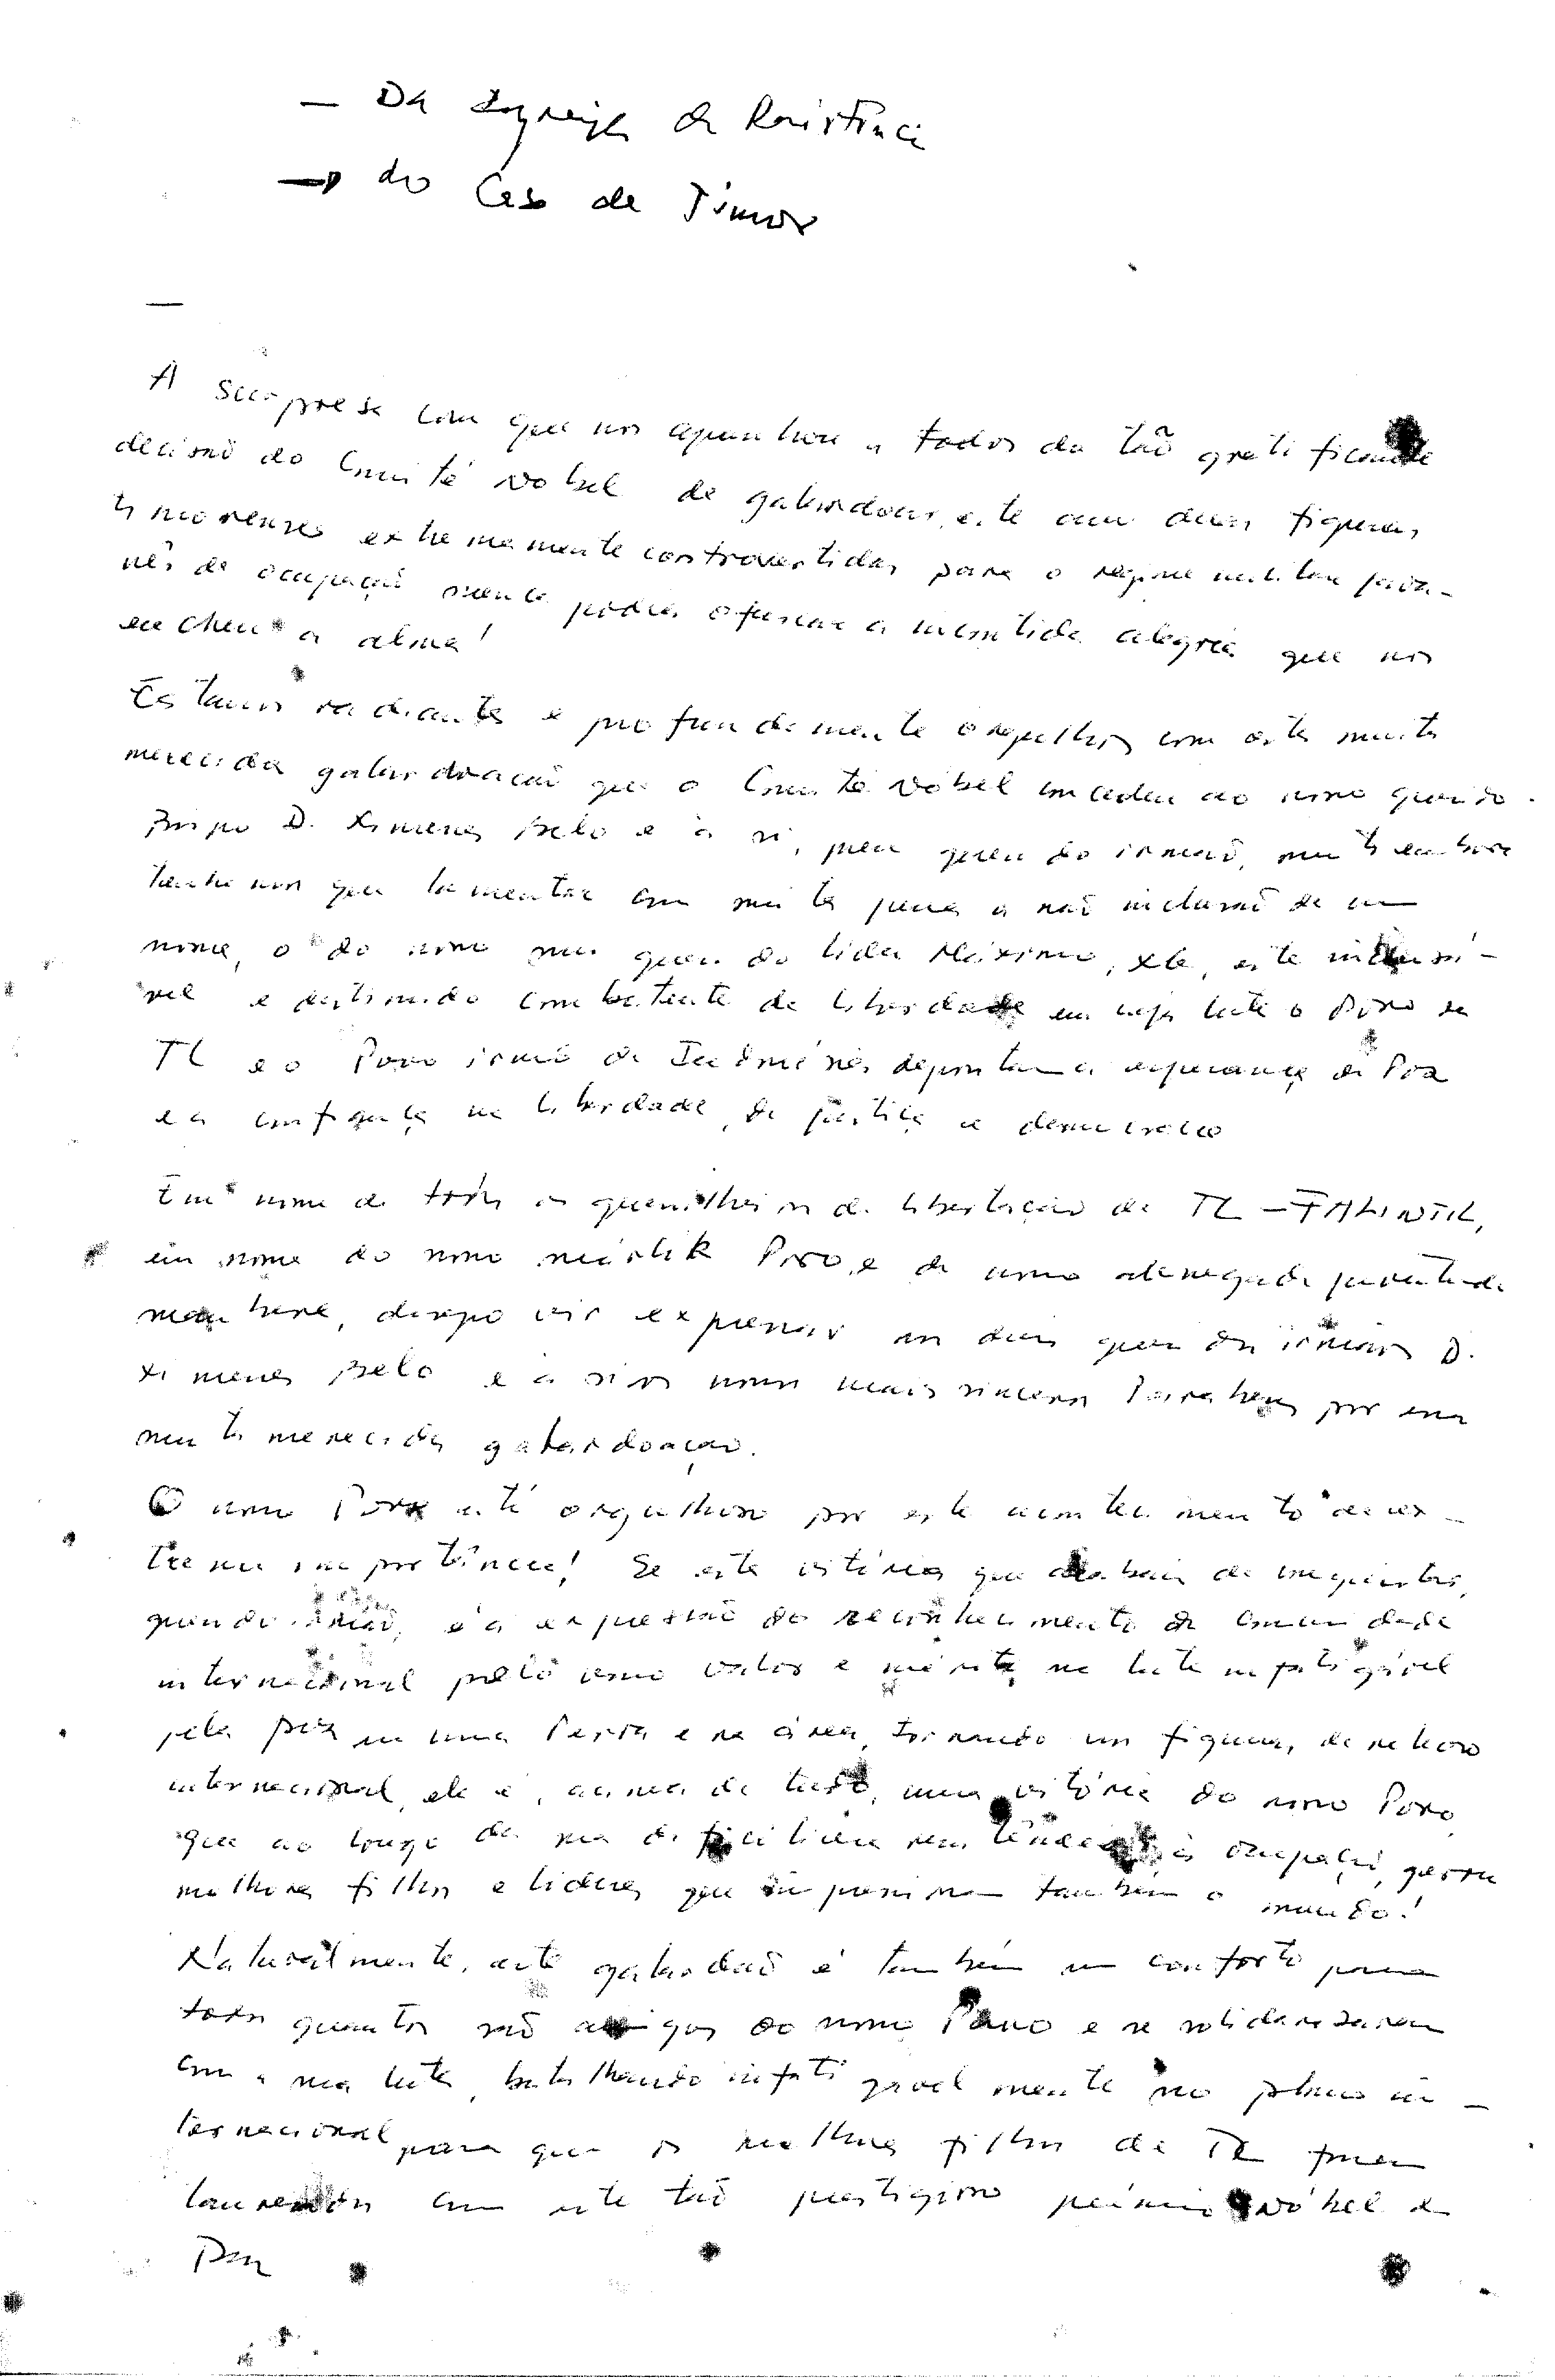 — Da
→ do Caso de Timor
—
A surpresa com que nos apanhou a todos da tão gratificante
decisão do Comité Nobel de galardoar este ano duas figuras
timorenses extremamente controvertidas para o regime militar java-
nês de ocupação nunca podia ofuscar a incontida alegria que nos
enchem a alma!
Estamos radiantes e profundamente orgulhosos com esta muito
merecida galardoação que o Comité Nóbel concedeu ao nosso querido
Bispo D. Ximenes Belo e a si, meu querido irmão, muito embora
tenhamos que lamentar com muita pena a não inclusão de um
nome, o do nosso mui querido líder Máximo, XG, este
e destimido combatente da liberdade em cuja luta o Povo de
TL e o Povo irmão da Indonésia depositam a esperança da Paz
e a confiança na liberdade, da justiça e democracia
Em nome de todos os guerrilheiros da libertação de TL — FALINTIL,
em nome do nosso Povo, e da nossa abnegada juventude
maubere, desejo vir expressar aos dois queridos irmãos D.
Ximenes Belo e a si os nossos mais sinceros Parabens por essa
muito merecida galardoação.
O nosso Povo está orgulhoso por este acontecimento de ex-
trema importância! Se esta vitória que acabais de conquistar,
querido irmão, é a expressão do reconhecimento da comunidade
internacional pelo vosso valor e mérito na luta infatigável
pela paz na nossa Terra e na área, tornando-vos figuras de relevo
internacional, ela é, acima de tudo, uma vitória do nosso Povo
que ao longo da sua dificílima resistência à ocupação, gerou
melhores filhos e líderes que impressionam também o mundo!
Naturalmente, este galardão é também um conforto para
todos quantos são amigos do nosso Povo e se solidarizaram
com a sua luta, batalhando infatigavelmente no plano in-
ternacional para que os melhores filhos de TL fossem
laureados com este tão prestigioso prémio Nóbel da
Paz